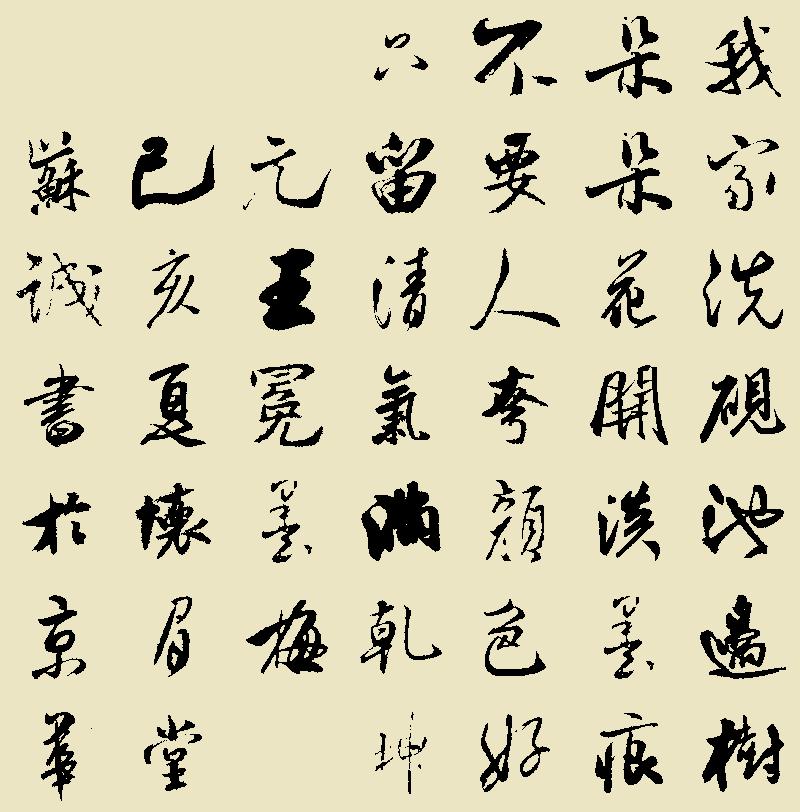 我家洗硯池邊樹
朵朵花開淡墨痕
不要人夸顏色好
只留清氣滿乾坤
元王冕墨梅
己亥夏懷眉堂
蘇誠書於京華